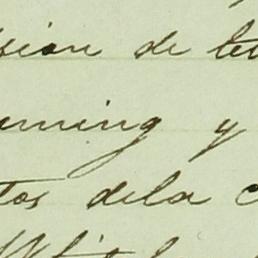 sion de te
uming y
tos dela c